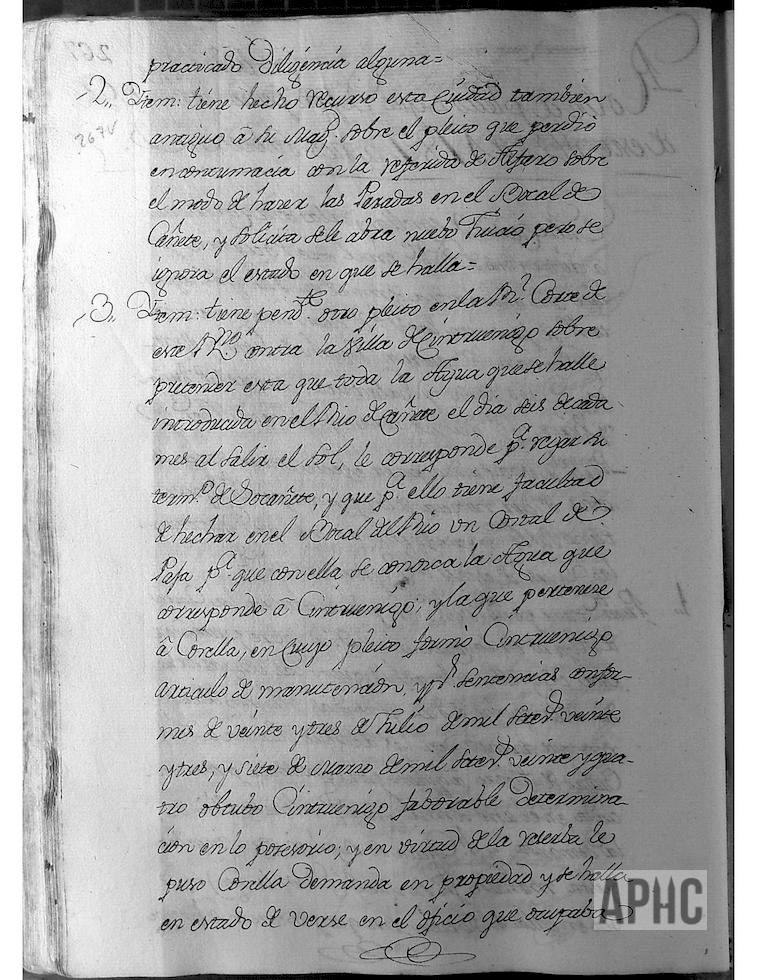 practicado Diligencia alguna=
-2,, Ytem: tiene hecho recurso esta Ciudad tambien
267v
antiguo â su Magd. sobre el pleito que perdió
en contumacia con la referida de Alfaro sobre
el modo de hazer las Paradas en el Bocal de
Cañete, y solicita sele abra nuebo Juicio pero se
ignora el estado en que se halla=
-3,, Ytem: tiene pendte. otro pleito en la Rl. Corte de
este Rno. contra la villa de Cintruenigo sobre
pretender esta que toda la Agua que se halle
introducida en el Rio de Cañete el dia seis de cada
mes al salir el Sol, le corresponde pa. regar su
termno. de Socañete, y que pa. ello tiene facultad
de hechar en el Bocal del Rio un Costal de
Paja pa. que con ella se conozca la Agua que
corresponde â Cintruenigo, y la que pertenece
â Corella, en cuyo pleito formó Cintruenigo
articulo de manutención, y pr. sentencias confor-
mes de veinte y tres de Julio de mil setezs. veinte
y tres, y siete de Marzo de mil setezs. veinte y qua-
tro obtubo Cintruenigo faborable Determina
cion en lo posesorio; y en virtud de la reserba le
puso Corella Demanda en propiedad y se halla
en estado de verse en el oficio que ocupaba
APHC